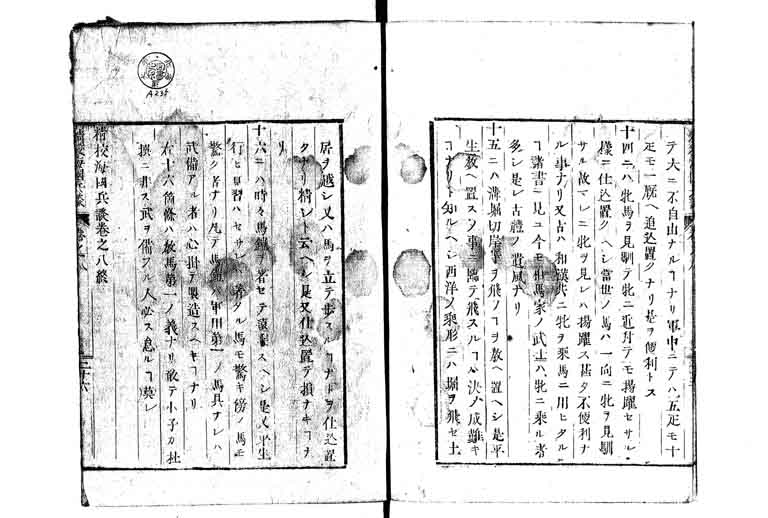 テ大ニ不自由ナルヿナリ軍中ニテハ五疋モ十
疋モ一厩ヘ追込置クナリ是ヲ便利トス
十四ニハ牝馬ヲ見馴テ牝ニ近付テモ揚躍セサル
様ニ仕込置クヘシ當世ノ馬ハ一向ニ牝ヲ見馴
サル故マレニ牝ヲ見レハ揚躍スヿ甚タ不便利ナ
ル事ナリ又古ハ和漢共ニ牝ヲ乗馬ニ用ヒタルヿ
諸書ニ見ユ今モ相馬家ノ武士ハ牝ニ乗ル者
多シ是レ古禮ノ遺風ナリ
十五ニハ溝堀切岸等ヲ飛ノヿヲ教ヘ置ヘシ是平
生教ヘ置スシテ事ニ臨テ飛スルヿハ決ノ成難キ
ヿナリト知ルヘシ西洋ノ乗形ニハ堀ヲ飛セ土
居ヲ越シ又ハ馬ヲ立テ歩スルヿナトヲ仕込置
クナリ精シト云ヘシ是又仕込置テ損ナキヿナ
リ
十六ニハ時々馬鎧ヲ着セテ
行ヒ見習ハセサレハ着タル馬モ驚キ傍ノ馬モ
驚ク者ナリ凡テ馬鎧ハ軍用第一ノ馬具ナレハ
武備アル者ハ心掛テ製造スヘキヿナリ
右十六箇條ハ教馬第一ノ義ナリ敢テ小子カ杜
撰ニ非ス武ヲ備フル人必ス怠ルヿ莫レ
精校海國兵談巻之八終
二十六
A235